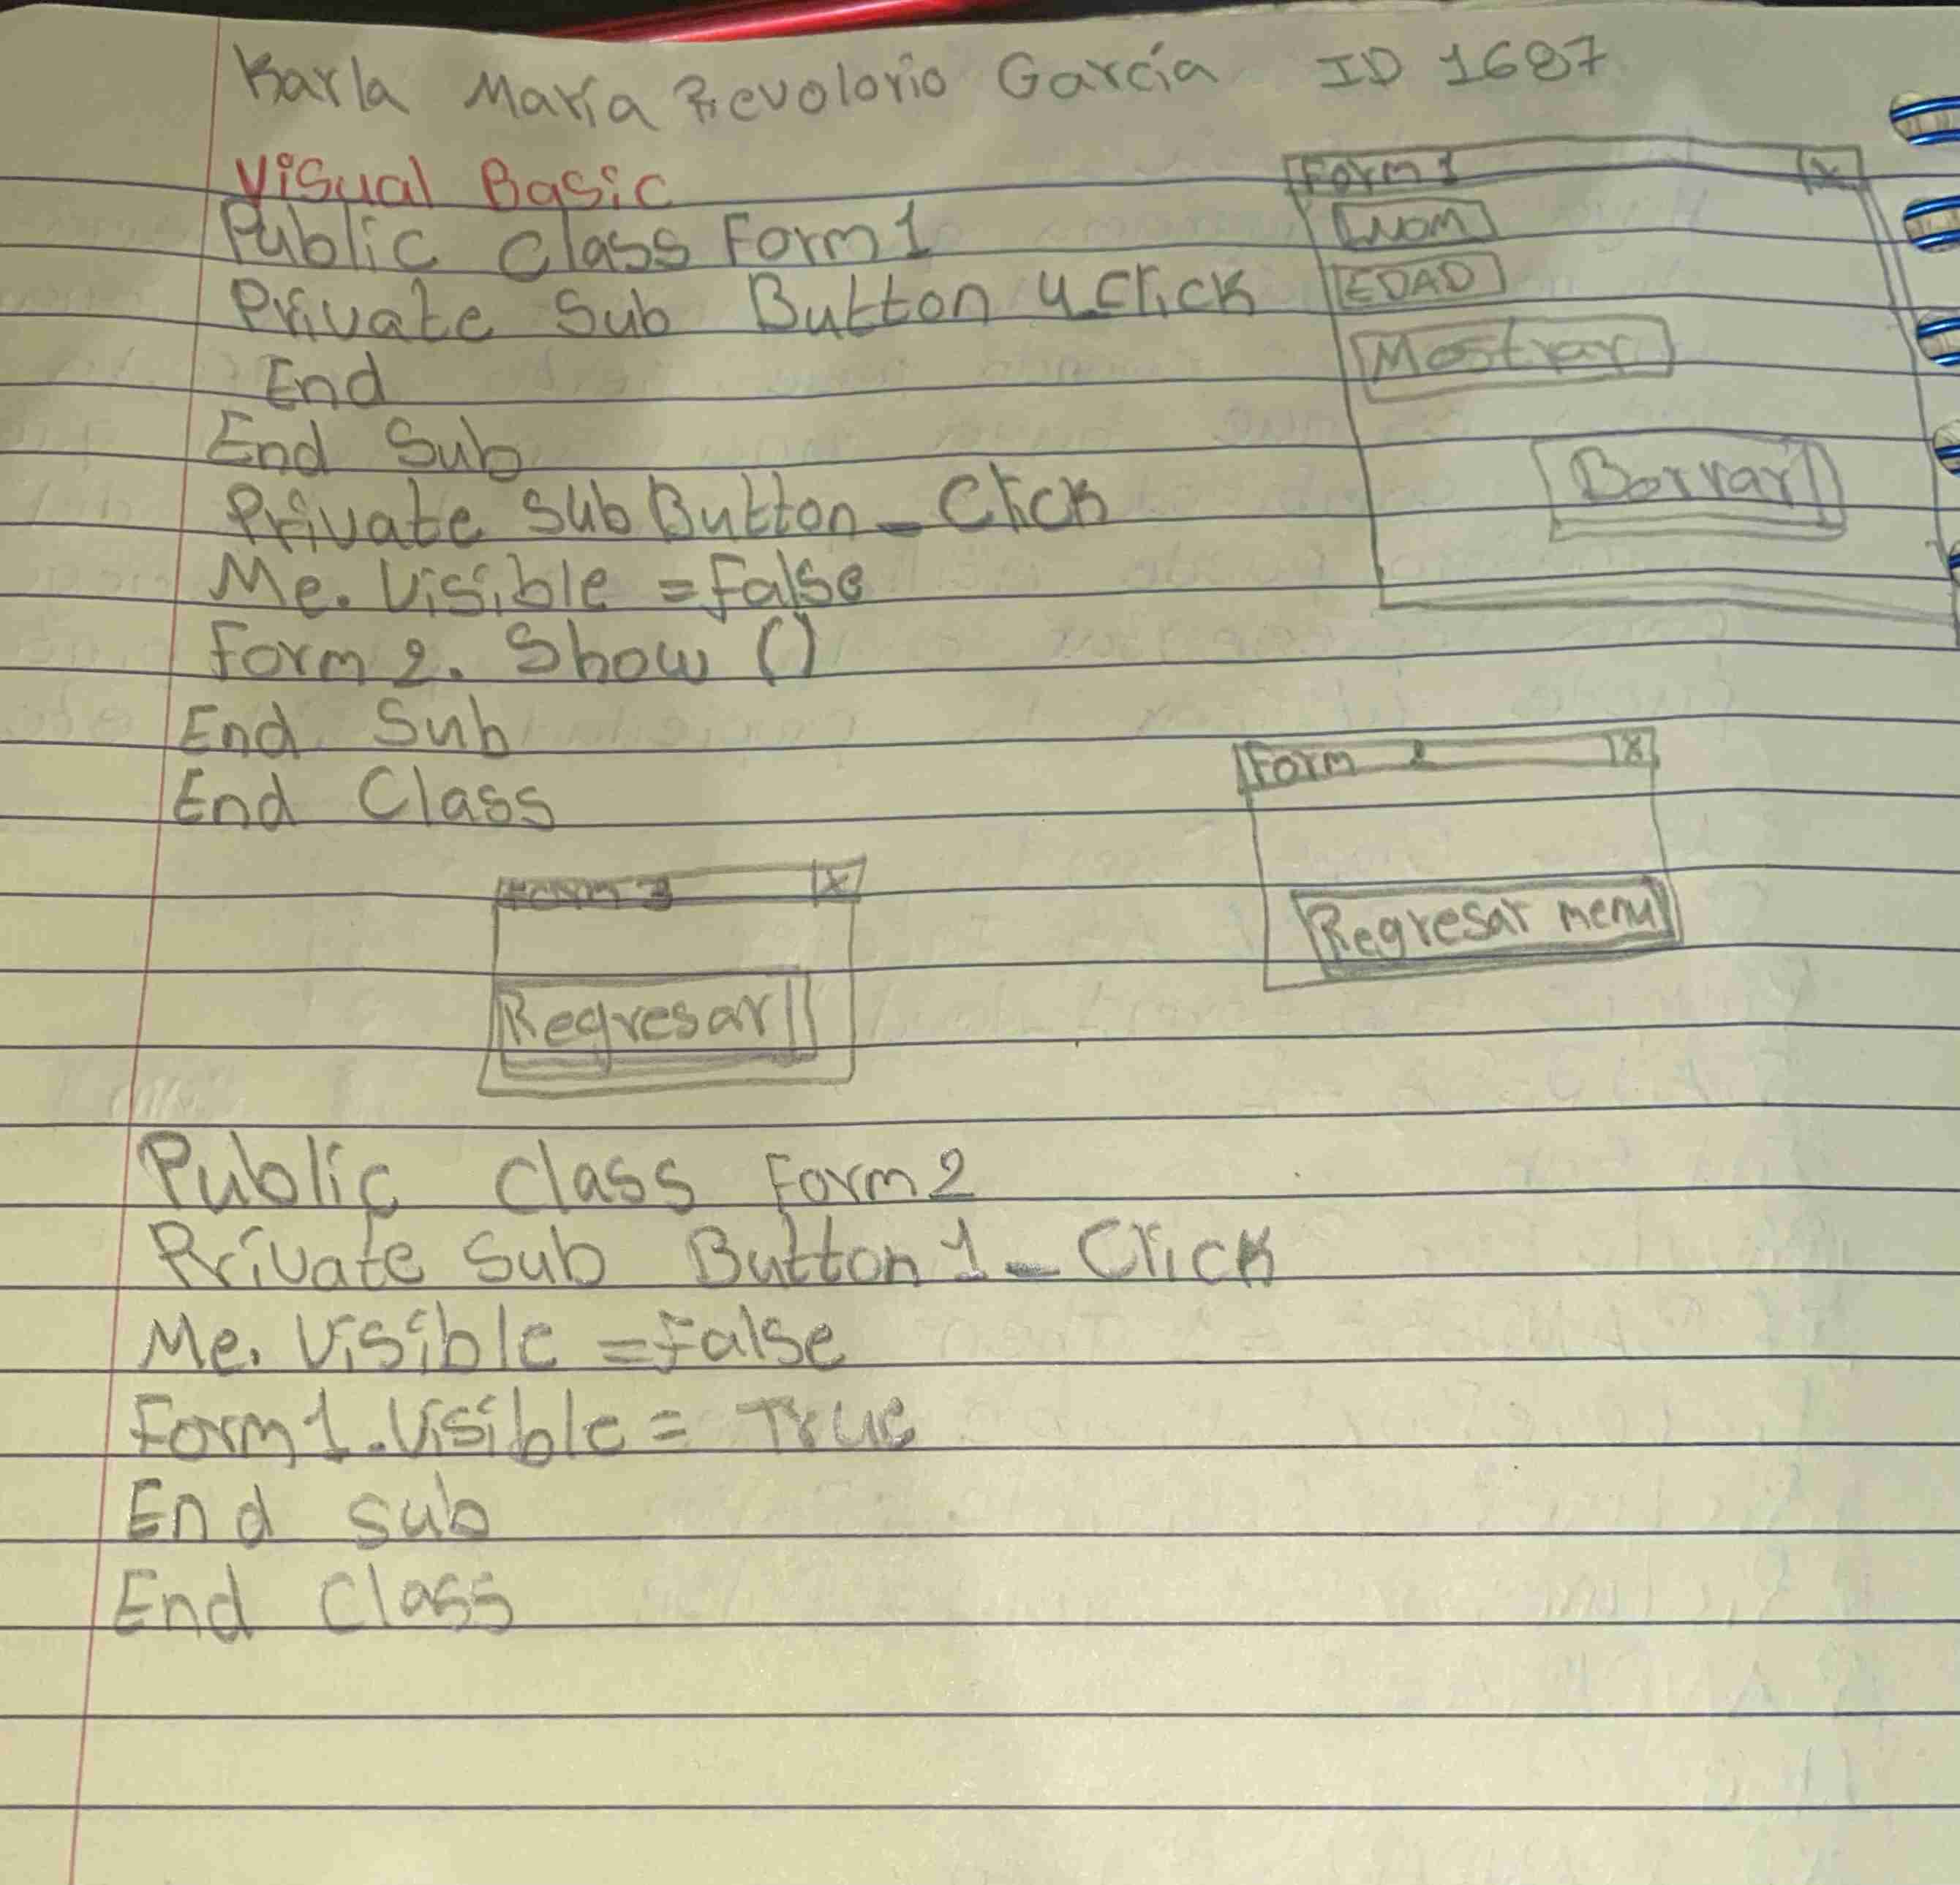 Karla María Revolorio García ID 1687
Visual Basic
Public class Form1
Private Sub Button 4_Click
End
End Sub
Private Sub Button_Click
Me.Visible = False
Form 2. Show ()
End Sub
End Class
Form 1 X
NOM
EDAD
Mostrar
Borrar
Form 2 X
Regresar menu
Form 3 X
Regresar
Public class Form2
Private Sub Button 1_Click
Me.Visible = False
Form1.Visible = True
End sub
End Class